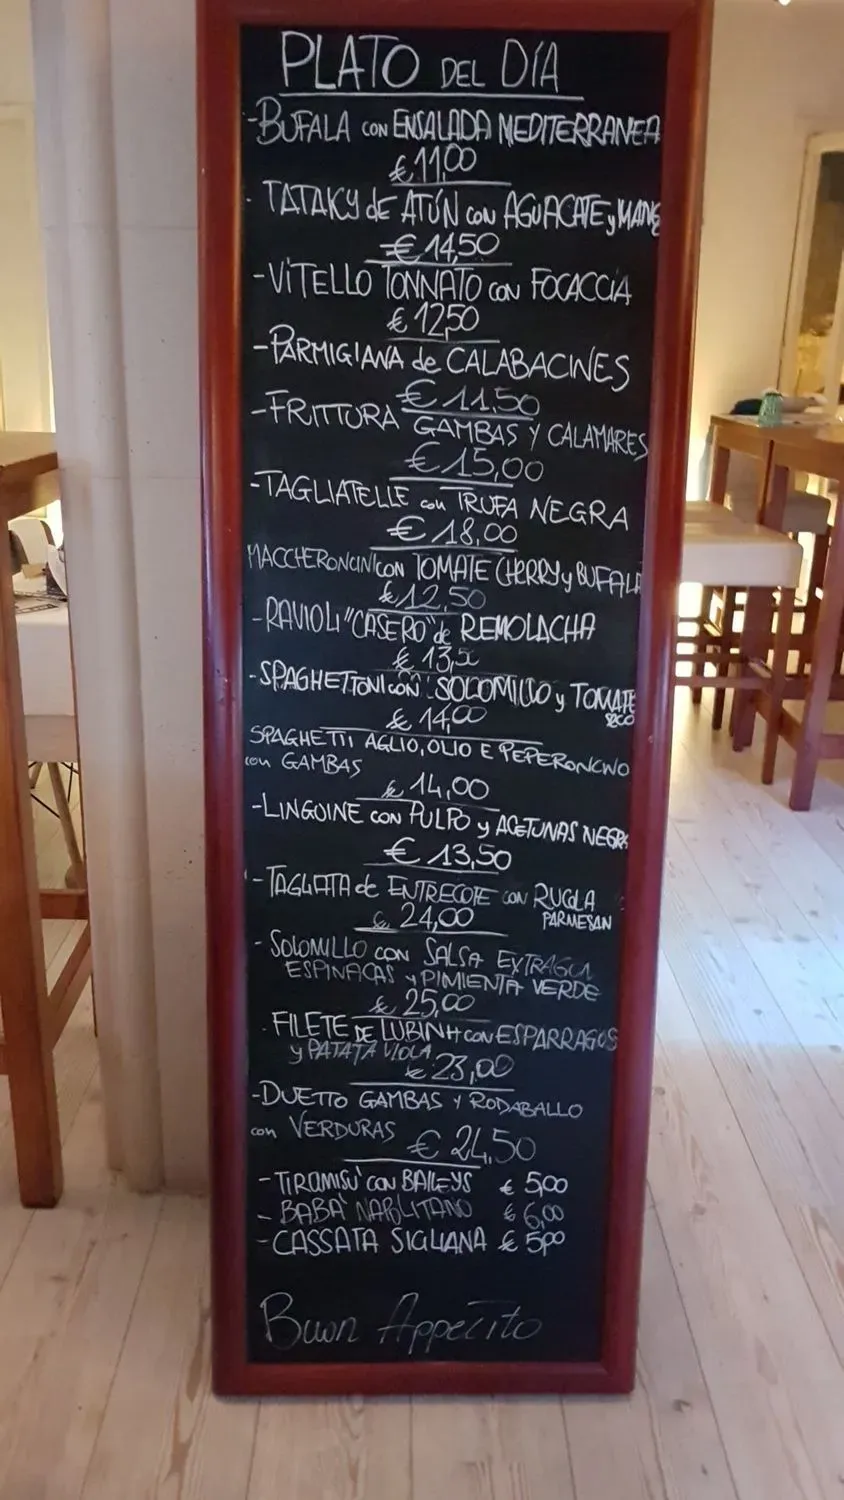 PLATO DEL DÍA
-BUFALA CON ENSALADA MEDITERRANEA
€ 11,00
- TATAKY de ATÚN con AGUACATE y MANG
€ 14,50
-VITELLO TONNATO CON FOCACCIA
€ 12,50
-PARMIGIANA de CALABACINES
€ 11,50
-FRITTURA GAMBAS Y CALAMARES
€ 15,00
-TAGLIATELLE con TRUFA NEGRA
€ 18,00
MACCHERONCINI CON TOMATE CHERRY y BUFALA
€ 12,50
-RAVIOLI "CASERO" de REMOLACHA
€ 13,5
-SPAGHETTONI CON SOLOMILLO y TOMATE
SECO
€ 14,00
SPAGHETTI AGLIO, OLIO E PEPERONCINO
con GAMBAS
€ 14,00
-LINGUINE CON PULPO y ACETUNAS NEGRA
€ 13,50
-TAGLIATA de ENTRECOTE CON RUCOLA
PARMESAN
€ 24,00
- SOLOMILLO CON SALSA
ESPINACAS y PIMIENTA VERDE
€ 25,00
- FILETE DE LUBINA con ESPARRAGOS
y PATATA VIOLA
€ 23,00
-DUETTO GAMBAS Y RODABALLO
con VERDURAS € 24,50
- TIRAMISU' CON BAILEYS € 5,00
- BABA' NAPOLITANO € 6,00
- CASSATA SICILIANA € 5,00
Buon Appetito